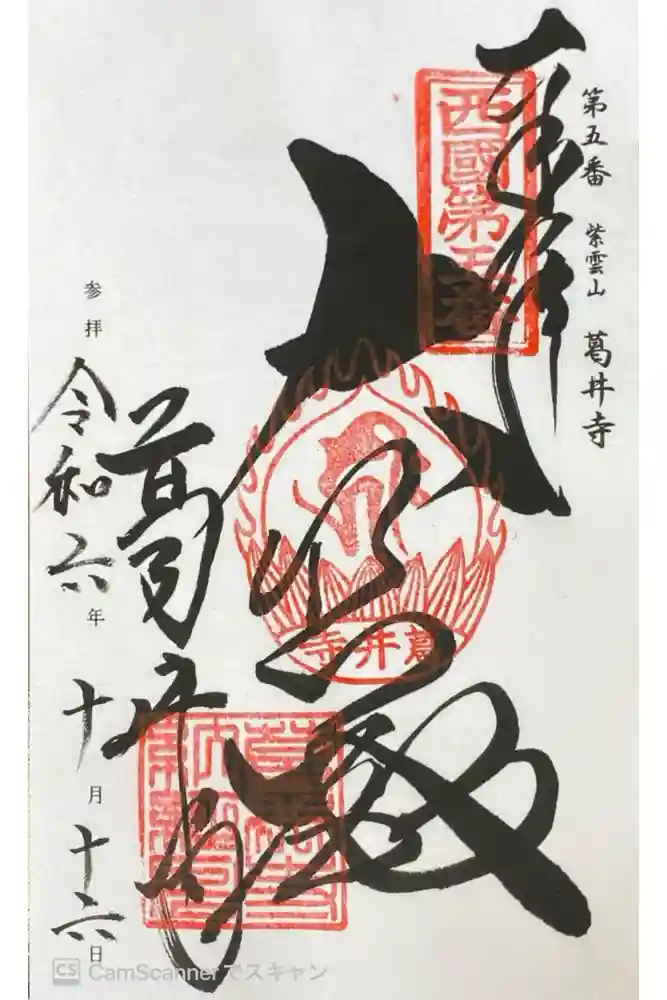 第五番 紫雲山 葛井寺
奉拝
西國第五番
大悲殿
葛井寺
葛井寺
参拝 令和六年十月十六日
CS CamScannerでスキャン